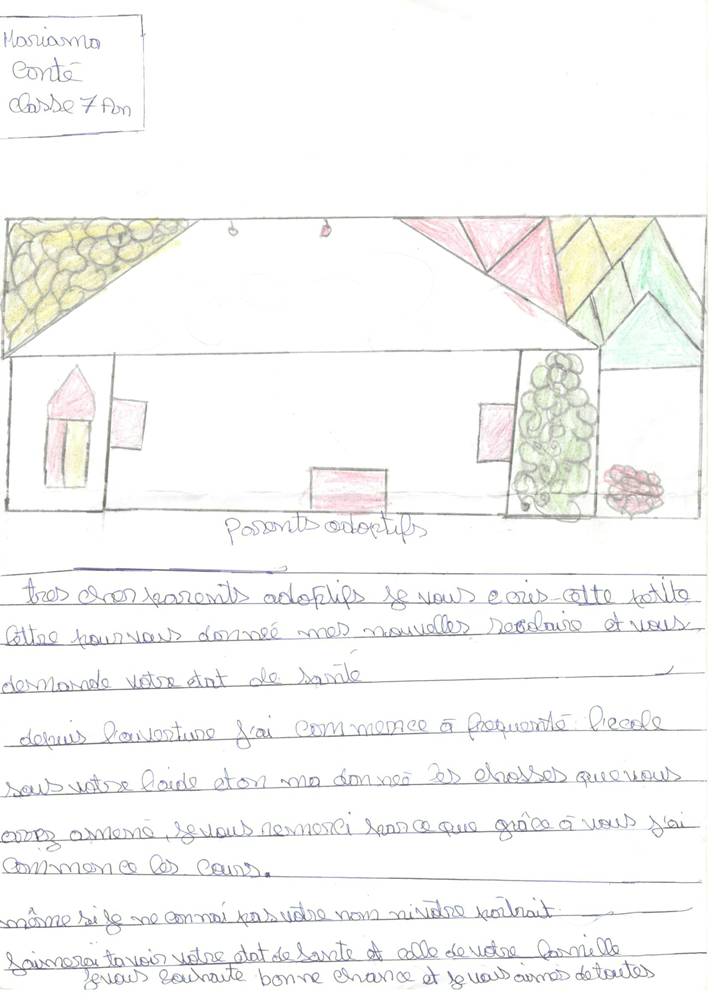 Mariama
Conté
classe 7 An
Parents adoptifs
tres cher parents adoptifs je vous ecris cette petite
lettre pour vous donneé mes nouvelles scolaire et vous
demande votre etat de santé
depuis l'ouverture j'ai commence à frequenté l'ecole
sous votre l'aide et on ma donneé les chosses que vous
avez amené, je vous remerci parce que grâce à vous j'ai
commence les cours.
même si je ne connai pas votre nom ni votre portrait
j'aimerai savoir votre etat de sante et celle de votre famille
je vous souhaite bonne chance et je vous aimes de toutes